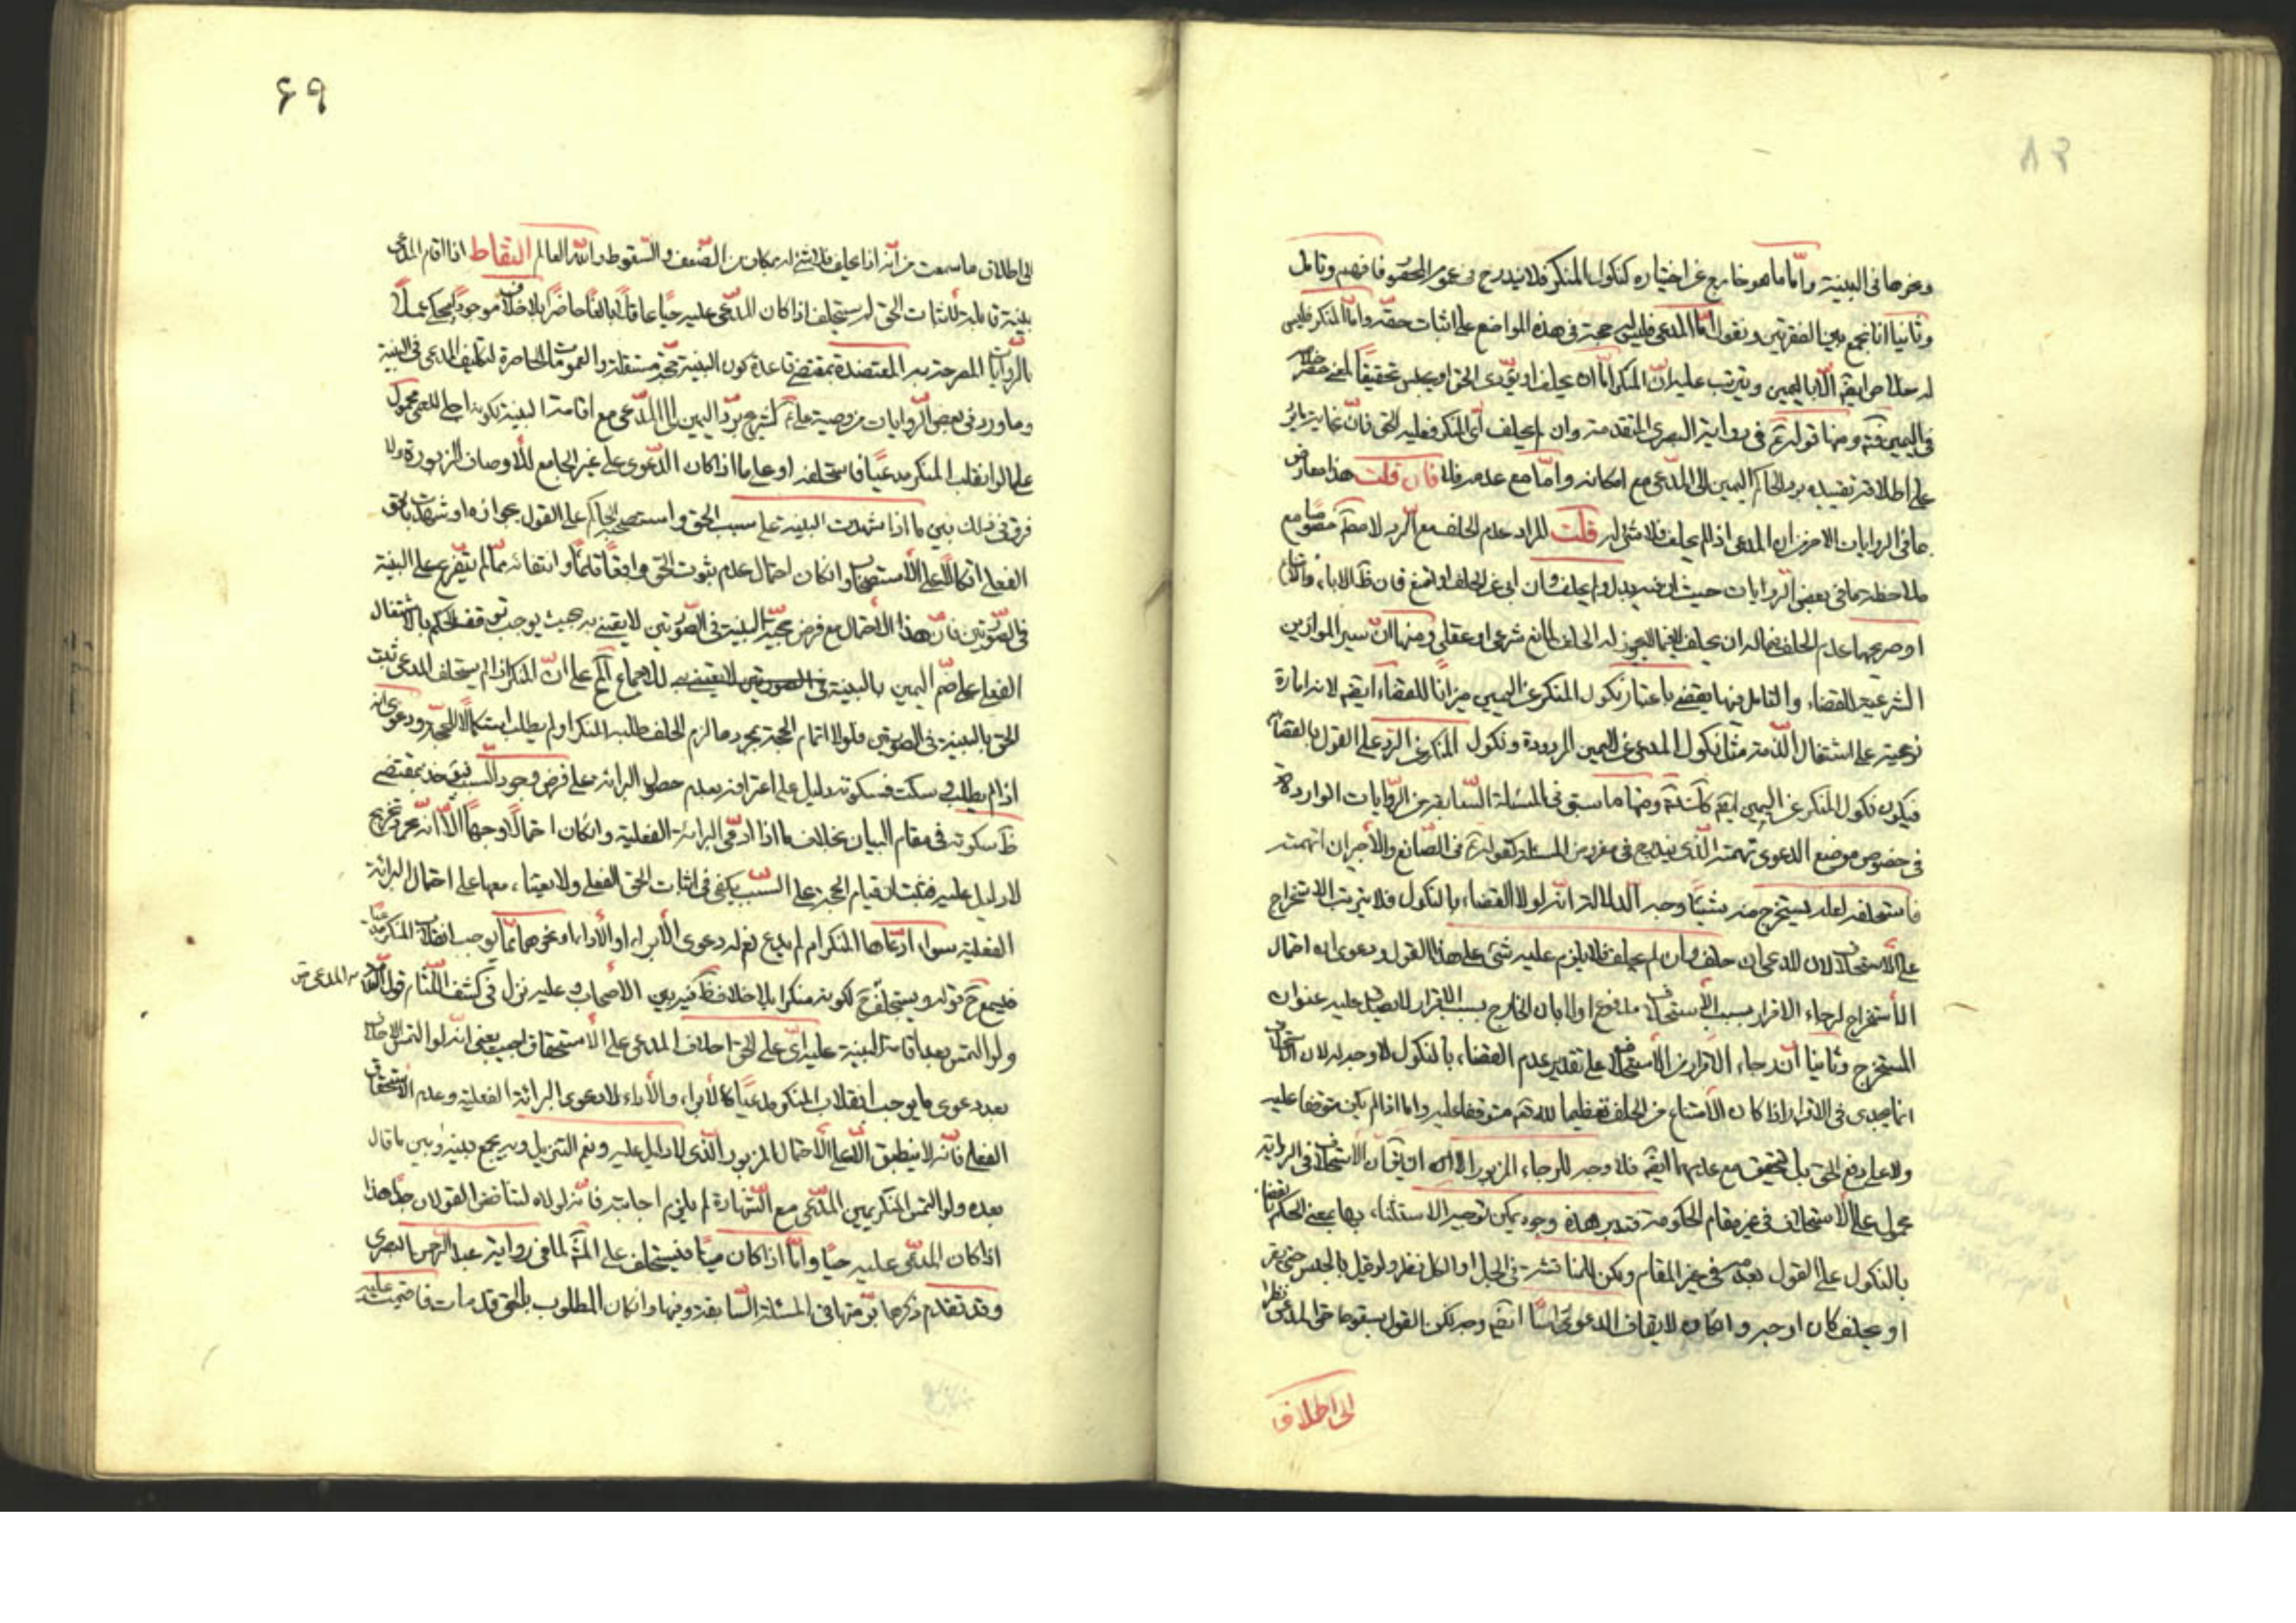 ونحوها فى البينة واما ما هو خارج عن اختياره كنكول المنكر فلا يندرج فى عموم الحصر فافهم وتامل
وثانيا انا نجمع بين الفقرتين ونقول اما المدعى فليس حجة فى هذه المواضع على اثبات حقه واما المنكر فليس
الا باليمين ويترتب عليه ان المنكر اما ان يحلف او يؤدى الحق او يحبس تحقيقا لمعنى حصر
فى اليمين ومنها قوله فى رواية البصرى المتقدمة وان لم يحلف اى المنكر فعليه الحق فان غاية
على اطلاقه تقييده برد الحاكم اليمين الى المدعى مع امكانه واما مع عدمه فلا فان قلت هذا معارض
ما فى الروايات الاخر من ان المدعى اذا لم يحلف فلا شئ له قلت المراد عدم الحلف مع الرد لا مطلقا خصوصا مع
ملاحظة ما فى بعض الروايات حيث ولم يحلف وان ابى عن الحلف او امتنع فان ظ الاباء
او صريحهما عدم الحلف فيما له ان يحلف لا فيما لا يجوز له الحلف لمانع شرعى او عقلى ومنها ان سبر الموازين
الشرعية للقضاء والتامل فيها يقضى باعتبار نكول المنكر عن اليمين ميزانا للقضاء ايضا لانه امارة
نوعية على اشتغال الذمة مثل نكول المدعى عن اليمين المردودة ونكول المنكر عن الرد على القول بالقضاء
فيكون نكول المنكر عن اليمين ايضا ومنها ما سبق فى المسئلة السابقة من الروايات الواردة
فى خصوص موضع الدعوى تهمة الذى يندرج فى مفروض المسئلة كقوله فى الصانع والاجير ان اتهمته
فاستحلفه لعله يستخرج منه شيئا وجه الدلالة انه لولا القضاء بالنكول فلا يترتب الاستخراج
على الاستحلاف لان المدعى ان حلف وان لم يحلف فلا يلزم عليه شئ على هذا القول ودعوى ان احتمال
الاستخراج لرجاء الاقرار بسبب الاستحلاف مدفوع اولا بان الخارج بسبب الاقرار لا يصدق عليه عنوان
المستخرج وثانيا ان رجاء الاقرار من الاستحلاف على تقدير عدم القضاء بالنكول لا وجه له لان
انما يجدى فى الاقرار اذا كان الامتناع من الحلف تعظيما لله متوقفا عليه واما اذا لم يكن متوقفا عليه
ولا على دفع الحق بل يتحقق مع عدمهما ايضا فلا وجه للرجاء المزبور الا ان يق ان الاستحلاف فى الرواية
محمول على الاستحلاف فى غير مقام الحكومة فتدبر هذه وجوه يمكن توجيه الاستثناء بها بمعنى الحكم بالقضاء
بالنكول على القول بعدمه فى غير المقام ولكن للمناقشة فى الجل او الكل نظر ولو قيل بالحبس حتى يقر
او يحلف كان اوجه وان كان لايقاف الدعوى ايضا وجه لكن القول بسقوط حق المدعى نظرا
الى اطلاق
٦٩
الى اطلاق ما سمعت من انه اذا لم يحلف فلا شئ له بمكان من الضعف والسقوط والله العالم التقاط اذا اقام المدعى
بينة قابلة لاثبات الحق لم يستحلف اذا كان المدعى عليه حيا عاقلا بالغا حاضرا بلا خلاف موجود يحكى عملا
بالروايات المصرحة به المعتضدة بمقتضى قاعدة كون البينة حجة مستقلة والعمومات الحاصرة لتكليف المدعى فى البينة
وما ورد فى بعض الروايات من وصية على لشريح برد اليمين الى المدعى مع اقامة البينة محمول
على ما لو انقلب المنكر مدعيا فاستحلفه او على ما اذا كان الدعوى على غير الجامع للاوصاف المزبورة ولا
فرق فى ذلك بين ما اذا شهدت البينة على سبب الحق واستصحبه الحاكم على القول بجوازه او شهدت بالحق
الفعلى اتكالا على الاستصحاب وان كان احتمال عدم ثبوت الحق واقعا قائما وانتفائه مما لم يتفرع على البينة
فى الصورتين فان هذا الاحتمال مع فرض حجية البينة فى الصورتين لا يعتنى به بحيث يوجب توقف الحكم بالاشتغال
الفعلى على ضم اليمين بالبينة فى الصورتين لا يعتنى به للاجماع على ان المنكر اذا لم يستحلف المدعى ثبت
الحق بالبينة فى الصورتين فلولا اتمام الحجة بمجردها لزم الحلف طلبه المنكر او لم يطلب استكمالا للحجة ودعوى انه
اذا لم يطلب وسكت فسكوته دليل على اعترافه بعدم حصول البرائة على فرض وجود السبب فيؤخذ بمقتضى
ظ سكوته فى مقام البيان بخلاف ما اذا ادعى البرائة الفعلية وان كان احتمالا وجيها الا انه مجرد تخريج
لا دليل عليه فثبت ان قيام الحجة على السبب يكفى فى اثبات الحق الفعلى ولا يعتنا معها على احتمال البرائة
الفعلية سواء ادعاها المنكر ام لم يدع نعم له دعوى الابراء او الاداء ونحوهما مما يوجب انقلاب المنكر مدعيا
فيسمع ح قوله ويستحلف ح لكونه منكرا بلا خلاف ظ فيه بين الاصحاب وعليه نزل فى كشف اللثام قول
المدعى
ولو التمس بعد اقامة البينة عليه اى على الحق احلاف المدعى على الاستحقاق اجيب يعنى انه لو التمس الاحلاف
بعد دعوى ما يوجب انقلاب المنكر مدعيا كالابراء والاداء لا دعوى البرائة الفعلية وعدم الاستحقاق
الفعلى فانه لا ينطبق الا على الاحتمال المزبور الذى لا دليل عليه ونعم التنزيل وبه يجمع بينه وبين ما قال
بعده ولو التمس المنكر يمين المدعى مع الشهادة لم يلزم اجابته فانه لولاه لتناقض القولان جدا هذا
اذا كان المدعى عليه حيا واما اذا كان ميتا فيستحلف على لما فى رواية عبد الرحمن البصرى
وقد تقدم ذكرها برمتها فى المسئلة السابقة وفيها وان كان المطلوب بالحق قد مات فاقيمت عليه